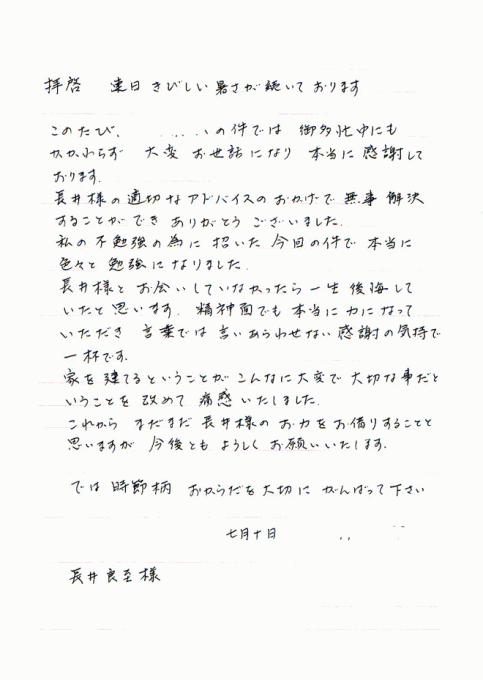 拝啓　連日 きびしい 暑さが 続いて おります
このたび、 の件では 御多忙中にも
かかわらず 大変 お世話になり 本当に 感謝して
おります。
長井様の適切なアドバイスの おかげで 無事 解決
することができ ありがとう ございました。
私の 不勉強の為に 招いた 今回の件で 本当に
色々と 勉強に なりました。
長井様と お会いしていなかったら 一生 後悔して
いたと思います。 精神面でも 本当に 力になって
いただき 言葉では 言いあらわせない 感謝の気持で
一杯です。
家を 建てるということが こんなに 大変で 大切な事だと
いうことを 改めて 痛感 いたしました。
これから まだまだ 長井様の お力をお借りすることと
思いますが 今後とも よろしく お願いいたします。
では 時節柄 おからだを大切に がんばって下さい
七月十日
長井良至様